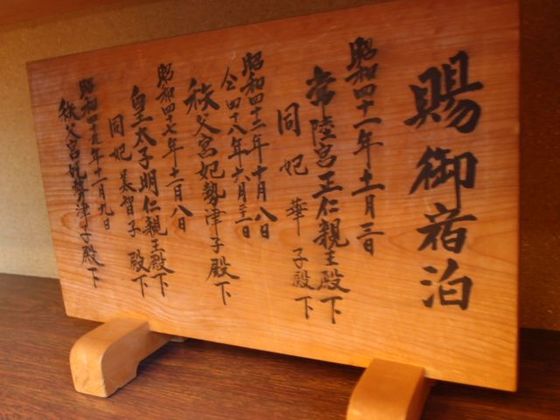 賜御宿泊
昭和四十一年十一月三日
常陸宮正仁親王殿下
同妃華子殿下
昭和四十二年十月八日
仝四十八年六月三日
秩父宮妃勢津子殿下
昭和四十七年十一月八日
皇太子明仁親王殿下
同妃美智子殿下
昭和四十五年十一月九日
秩父宮妃勢津子殿下